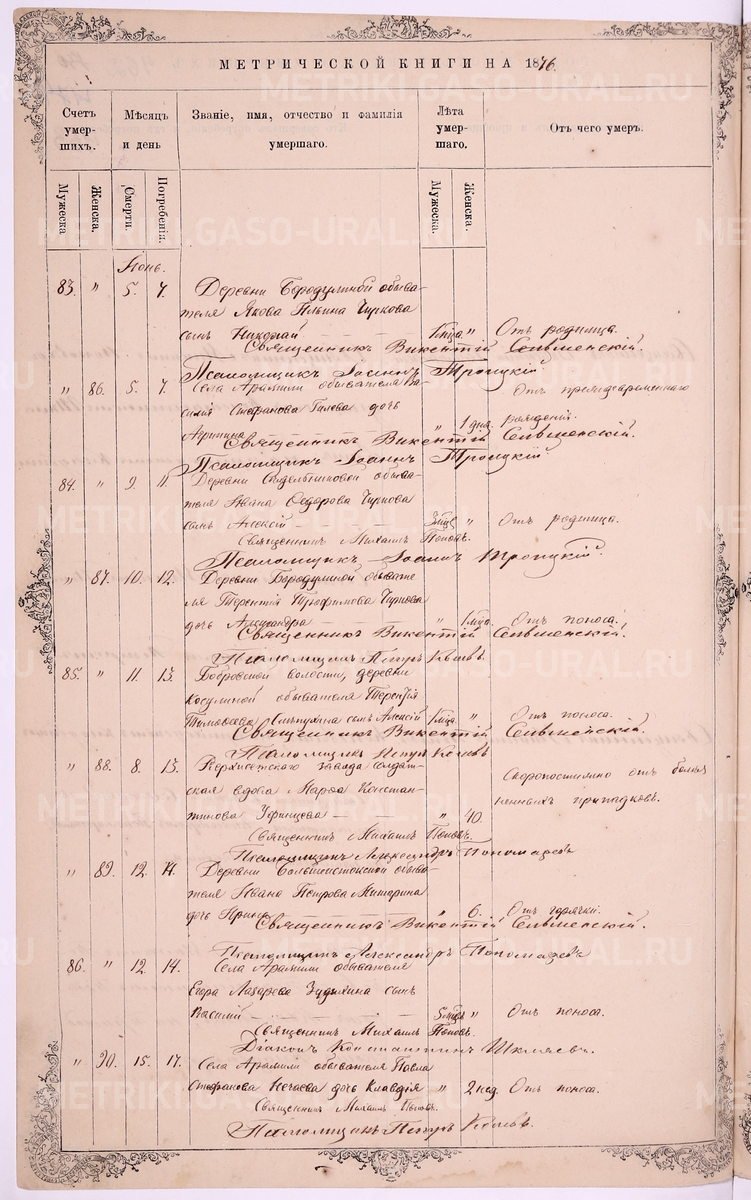 МЕТРИЧЕСКОЙ КНИГИ НА 1876.
Счетъ умер- шихъ. Мѣсяцъ и день Званіе, имя, отчество и фамилія умершаго. Лѣта умер- шаго. Отъ чего умеръ.
Мужеска Женска. Смерти. Погребенія. Мужеска. Женска.
Іюнь.
83. " 5. 7. Деревни Бородулиной обыва-
теля Якова Ильина Чиркова
сынъ Николай " Отъ родимца.
Священникъ Викентій
Псаломщикъ Іоаннъ Троицкій
" 86. 5. 7. Села Арамили обывателя Ва- Отъ преждевременнаго
силія Стефанова дочь " 1 дня. рожденія.
Священникъ Викентій
Псаломщикъ Іоаннъ Троицкій
84. " 9. 11. Деревни обыва-
теля Ивана Ѳедорова Чиркова
сынъ Алексій " Отъ родимца.
Священникъ Михаилъ Поповъ.
Псаломщикъ Іоаннъ Троицкій.
" 87. 10. 12. Деревни Бородулиной обывате-
ля Терентія Трофимова Чиркова
дочь Александра " Отъ поноса.
Священникъ Викентій
Псаломщикъ Петръ
85. " 11. 13. Бобровской волости, деревни
Косулиной обывателя Терентія
сынъ Алексій " Отъ поноса.
Священникъ Викентій
Псаломщикъ Петръ
" 88. 8. 13. Верхисетскаго завода солдат- Скоропостижно отъ болѣз
ская вдова Марѳа Констан- ненныхъ припадковъ.
тинова " 40.
Священникъ Михаилъ Поповъ.
Псаломщикъ Александръ Пономаревъ
" 89. 12. 14. Деревни обыва-
теля Ивана Петрова
дочь Ирина " 6. Отъ горячки.
Священникъ Викентій
Псаломщикъ Александръ Пономаревъ
86. " 12. 14. Села Арамили обывателя
Егора Лазарева сынъ
Василій " Отъ поноса.
Священникъ Михаилъ Поповъ.
Діаконъ Константинъ Шкляевъ.
" 90. 15. 17. Села Арамили обывателя Павла
Стефанова Нечаева дочь Клавдія " 2 нед. Отъ поноса.
Священникъ Михаилъ Поповъ.
Псаломщикъ Петръ
METRIKI.GASO-URAL.RU